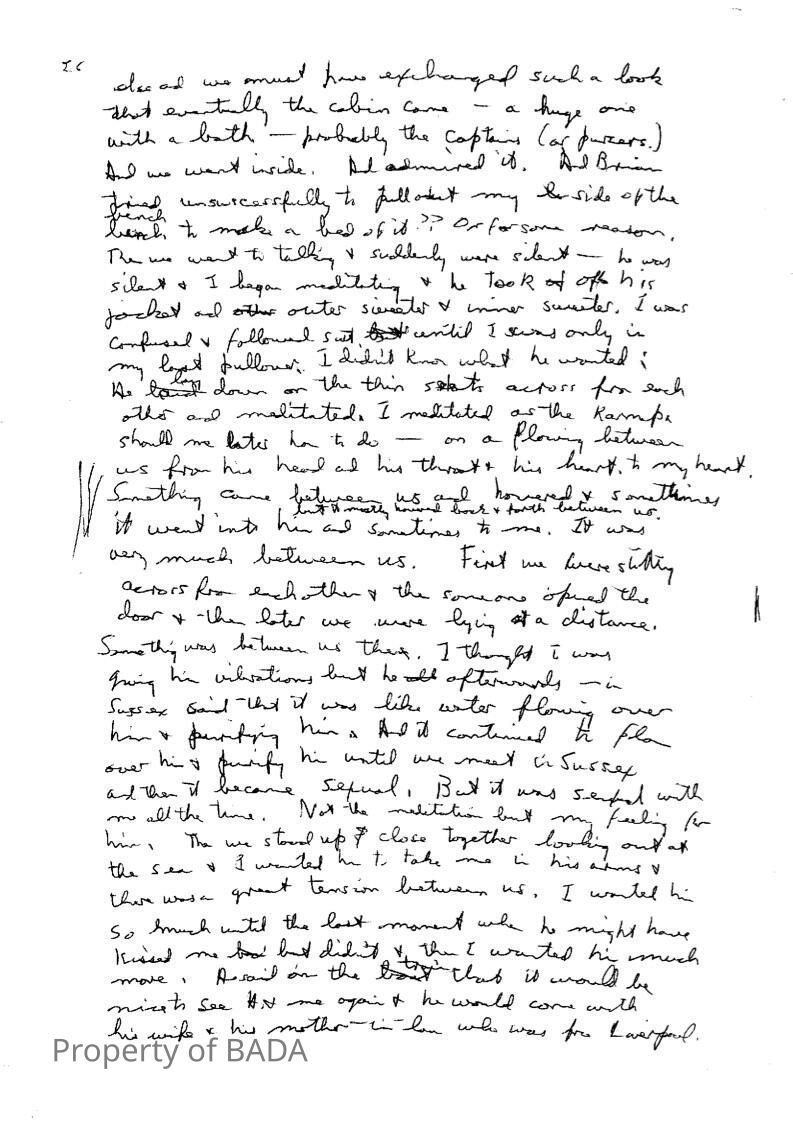 and we must have exchanged such a look
that eventually the cabin came – a huge one
with a bath – probably the Captains (or pursers.)
And we went inside. And admired it. And Brian
tried unsuccessfully to pull out my side of the
bench
bench to make a bed of it?? Or for some reason.
The we went to talking & suddenly were silent – he was
silent & I began meditating & he took of off his
jacket and other outer sweater & inner sweater. I was
confused & followed suit but until I was only in
my last pullover. I didn't know what he wanted;
lay
He down on the thin seats across from each
other and meditated. I meditated as the Karmapa
should me later how to do – on a flowing between
us from his head and his throat & his heart, to my heart.
Something came between us and hovered & sometimes
but mostly moved back & forth between us.
it went into him and sometimes to me. It was
very much between us. First we were sitting
across from each other & the someone opened the
door & then later we were lying at a distance.
Something was between us there. I thought I was
giving him vibrations but he afterwards – in
Sussex said that it was like water flowing over
him & purifying him. And it continued to flow
over him & purify him until we meet in Sussex
and then it became sexual. But it was sexual with
me all the time. Not the meditation but my feeling for
him. The we stood up & close together looking out at
the sea & I wanted him to take me in his arms &
there was a great tension between us. I wanted him
so much until the last moment when he might have
kissed me but didn't & then I wanted him much
train
more. He said on the boat that it would be
nice to see me again & he would come with
his wife & his mother-in-law who was from Liverpool.
Property of BADA